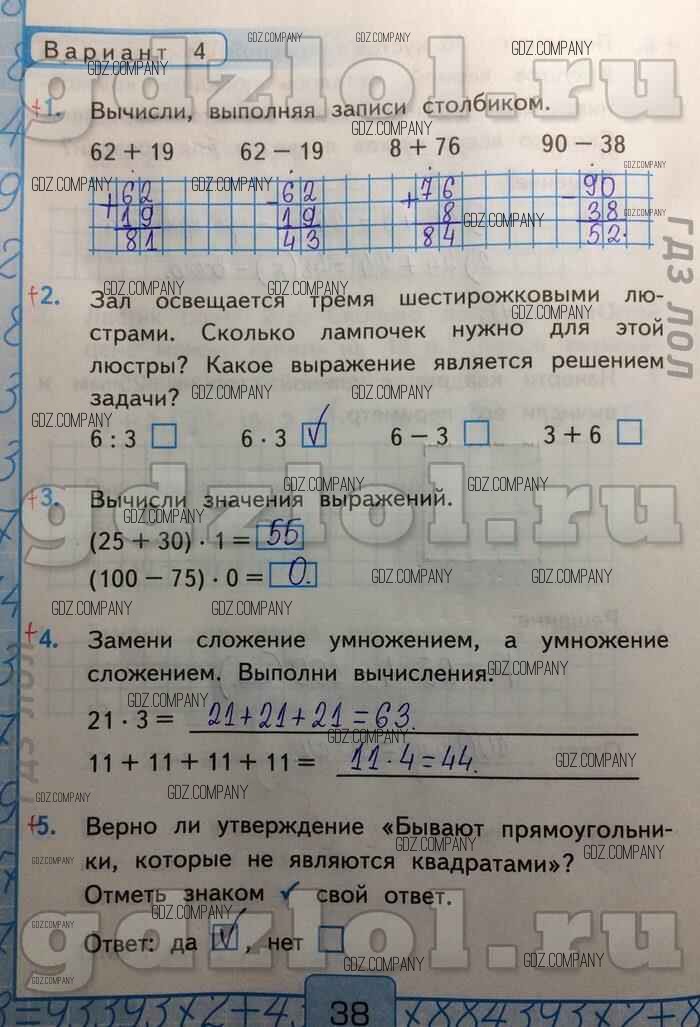 Вариант 4
1. Вычисли, выполняя записи столбиком.
62 + 19 62 − 19 8 + 76 90 − 38
+62 −62 +76 −90
19 19 8 38
81 43 84 52.
2. Зал освещается тремя шестирожковыми лю-
страми. Сколько лампочек нужно для этой
люстры? Какое выражение является решением
задачи?
6 : 3 6 · 3 ✓ 6 − 3 3 + 6
3. Вычисли значения выражений.
(25 + 30) · 1 = 55
(100 − 75) · 0 = 0.
4. Замени сложение умножением, а умножение
сложением. Выполни вычисления.
21 · 3 = 21+21+21=63.
11 + 11 + 11 + 11 = 11·4=44.
5. Верно ли утверждение «Бывают прямоугольни-
ки, которые не являются квадратами»?
Отметь знаком ✓ свой ответ.
Ответ: да ✓, нет
38
gdzlol.ru
gdzlol.ru
gdzlol.ru
ГДЗ ЛОЛ
ГДЗ ЛОЛ
GDZ.COMPANY